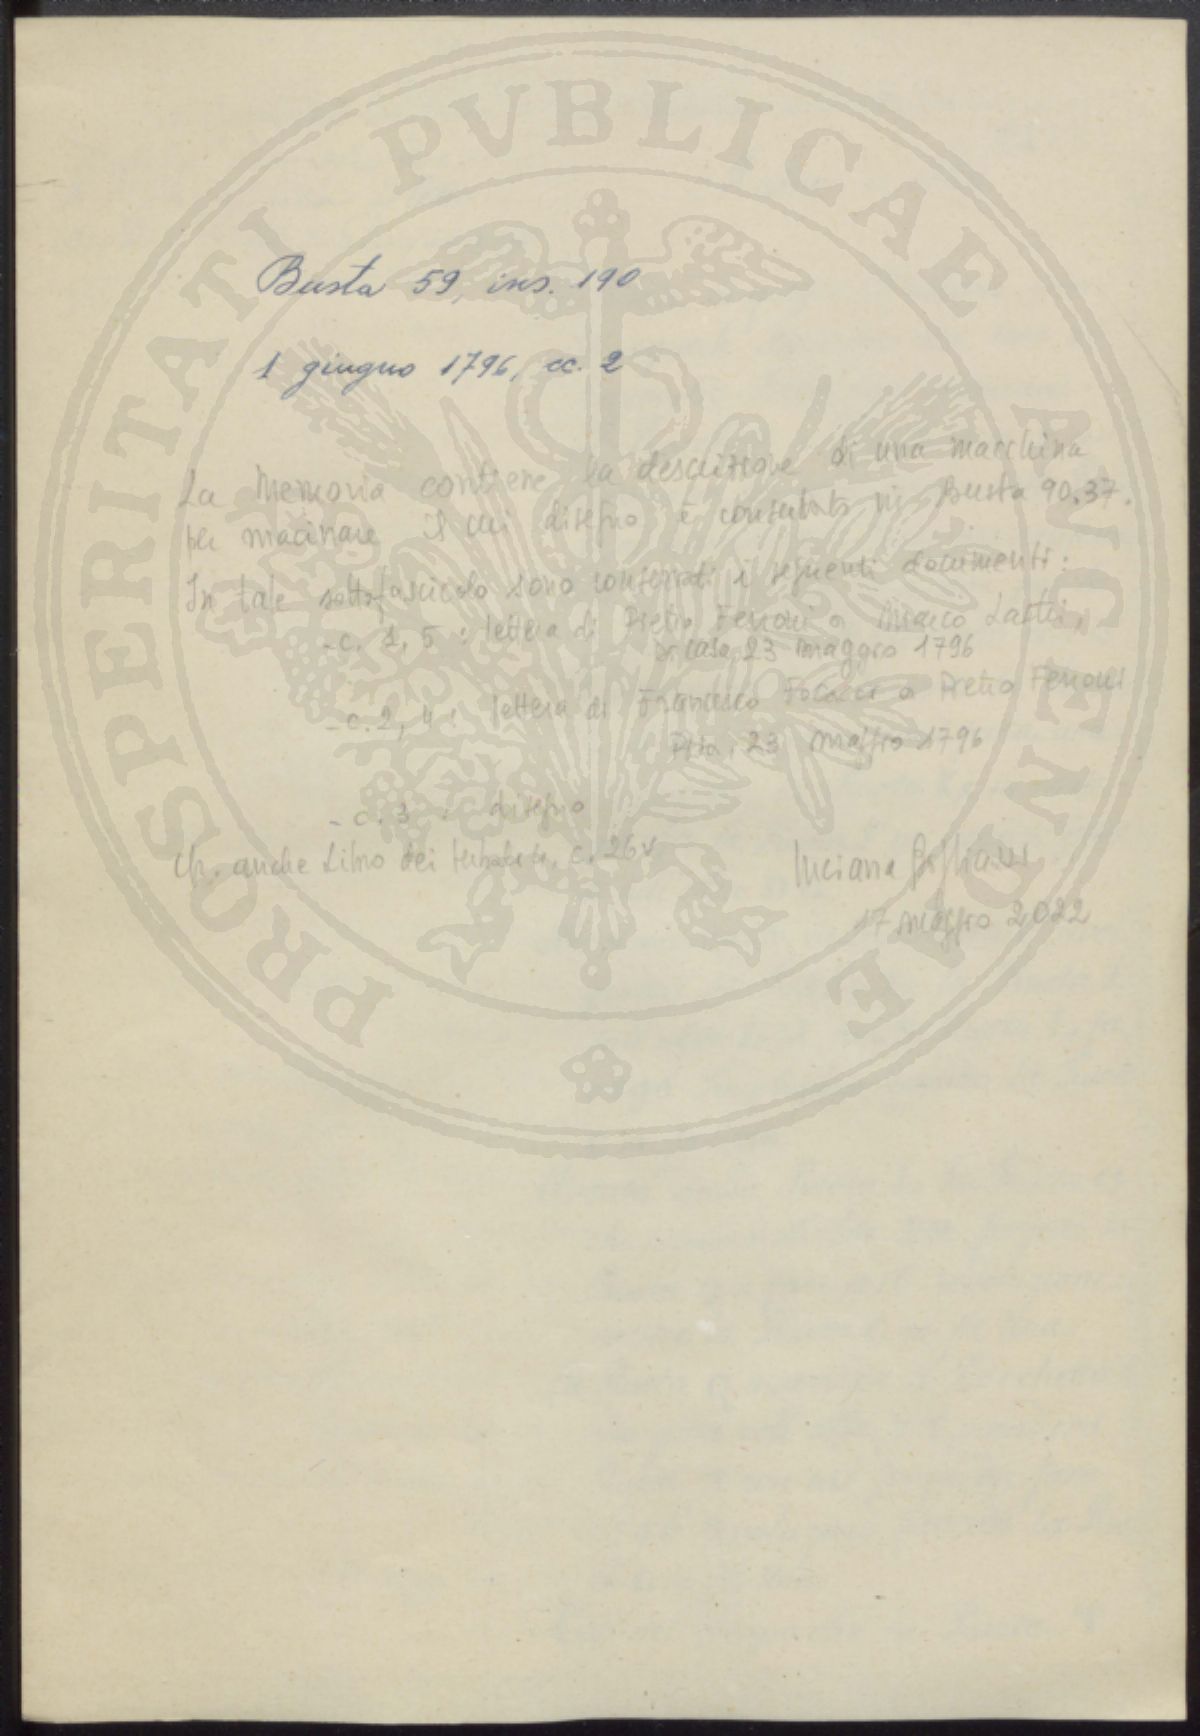 PROSPERITATI PVBLICAE AVGENDAE
Busta 59, ins. 190
1 giugno 1796, cc. 2
La Memoria contiene la descrizione di una macchina
per macinare il cui disegno è conservato in Busta 90.37.
In tale sottofascicolo sono conservati i seguenti documenti:
- c. 1, 5 : lettera di Pietro Ferroni a Marco Lastri,
Di casa, 23 maggio 1796
- c. 2, 4 : lettera di Francesco Focacci a Pietro Ferroni
Pisa, 23 maggio 1796
- c. 3 : disegno
Cfr. anche Libro dei c. 26v
Luciana
17 maggio 2022